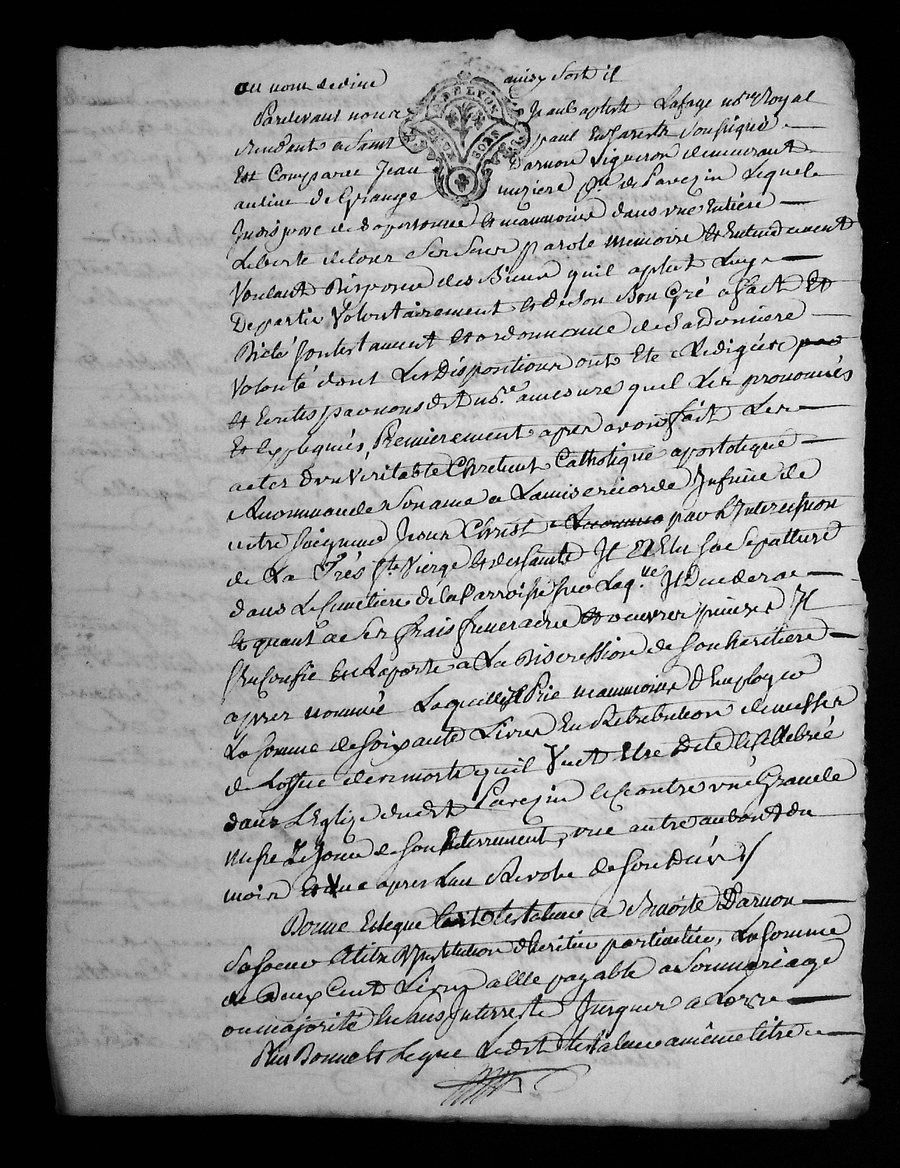 au nom de dieu ainsy soit il
Pardevant nous Jean Baptiste Lafage no.re Royal
Residant a Saint paul En Jarest Soussigné
Est Comparee Jean Darnon Vigneron demeurant
au lieu de Grange muziere p.sse de Pavezin Lequel
de sa personne et neanmoins dans une Entiere
Liberté de tous Ses Sens parole memoire Et Entendement
Voulant Disposer des Biens quil a plut
Departir Volontairement et de Son Bon Gré a fait Et
Dicté Son testament Et ordonnance de Sa derniere
Volonté dont Les Dispositions onts Eté Redigées
Et Ecrites par nous dit no.re a mesure quil Les prononcées
Et Expliqués, Premierement apres avoir fait Les
actes D'un Veritable Chretient Catholique apostolique
Recommande Son ame a La misericorde Infinie de
notre Seigneur Jesus Christ par L'Intercession
de La Très S.te Vierge Et des saints Il a Elu Sa Sepulture
dans Le Cimetiere de la Parroisse Sur Laq.lle Il Decedera
Et quant a Ses frais funeraires Et oeuvres pieuses Il
S'En Confie Et Raporte a La Discression de Son heritiere
apres nommée Laquelle Il Prie neanmoins D'Employer
La Somme de Soixante Livres En Retribution de messes
de L'office des morts quil Veut Etre Dite Et Celebrée
dans L'Eglize dudit Pavezin Et Contre une Grande
messe Le Jour de Son Enterrement, une autre au bout du
mois Et Une apres L'an Revolu de Son Deces
Donne Et legue Ledit testateur a Benoite Darnon
Sa Soeur A titre D'Institution D'heritiere particuliere, La Somme
de Deux Cent Livres a Elle payable a Son mariage
ou majorité Et Sans Interrest Jusques a Lors
Plus Donne Et Legue Ledit testateur a même titre